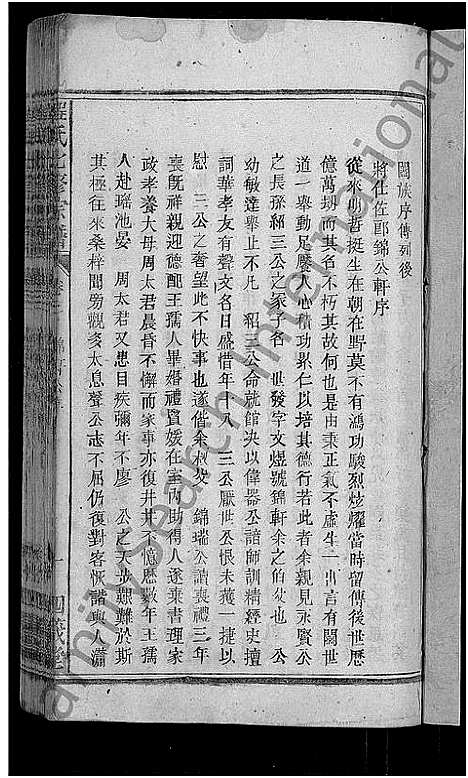 闔族序傳列後
將仕佐郎錦公軒序
從來明哲挺生在朝在野莫不有鴻功駿烈炫耀當時留傳後世歷
億萬刼而其名不朽其故何也是由秉正氣不虛生一出言有關世
道一舉動足饜人心積功累仁以培其德行若此者余親見永賢公
之長孫紹三公之冢子名 世發字文煜號錦軒余之伯父也 公
幼敏達舉止不凡 紹三公命就館決以偉器公諳師訓精經史擅
詞華孝友有聲文名日盛惜年十八 三公厭世公恨未獲一捷以
慰 三公之奢望此不快事也遂偕余叔父 錦瑞公讀喪禮三年
喪旣祥親迎德配王孺人畢婚禮賢媛在室內助得人遂棄書理家
政孝養大母周太君晨昏不懈而家事亦復井井不憶歷數年王孺
人赴瑶池宴 周太君又患目疾彌年不廖 公之天步艱難於斯
其極往來桑梓間旁觀多太息聲公志不屈仍復對客恢諧與人瀟
氏七修宗譜
FamilySearch International